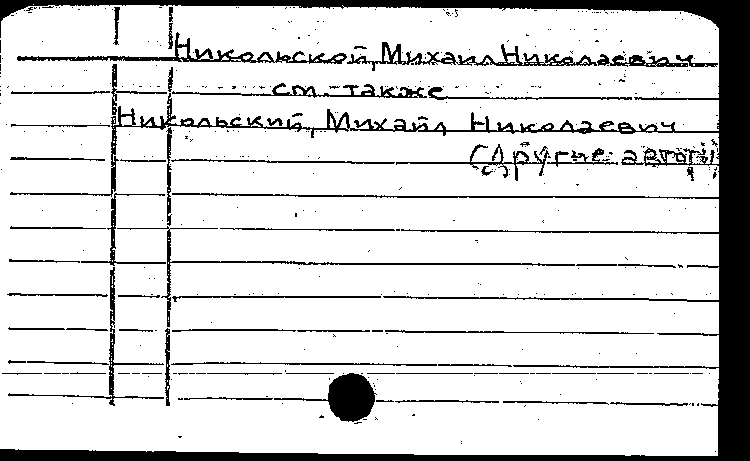 Никольской, Михаил Николаевич
см. также
Никольский, Михайл Николаевич
(Другие